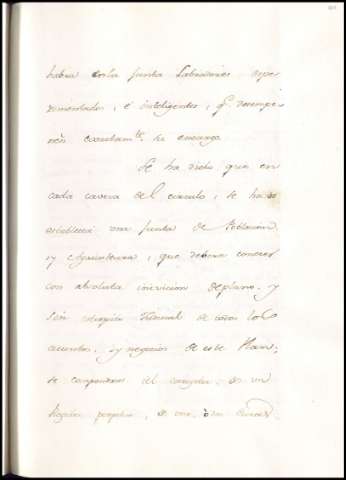 habra en la Junta Labradores, espe
rimentados, é inteligentes, q.e desempe
ñen exactam.te su encargo
Se ha dicho que en
cada cavera del circulo, se ha de
establecer una Junta de Poblacion,
y Agricultura, que debera conocer
con absoluta de plano, y
sin Tribunal de todos los
asuntos, y negocios de este Plan,
se compondrá del de un
Regidor perpetuo, de uno, ó dos